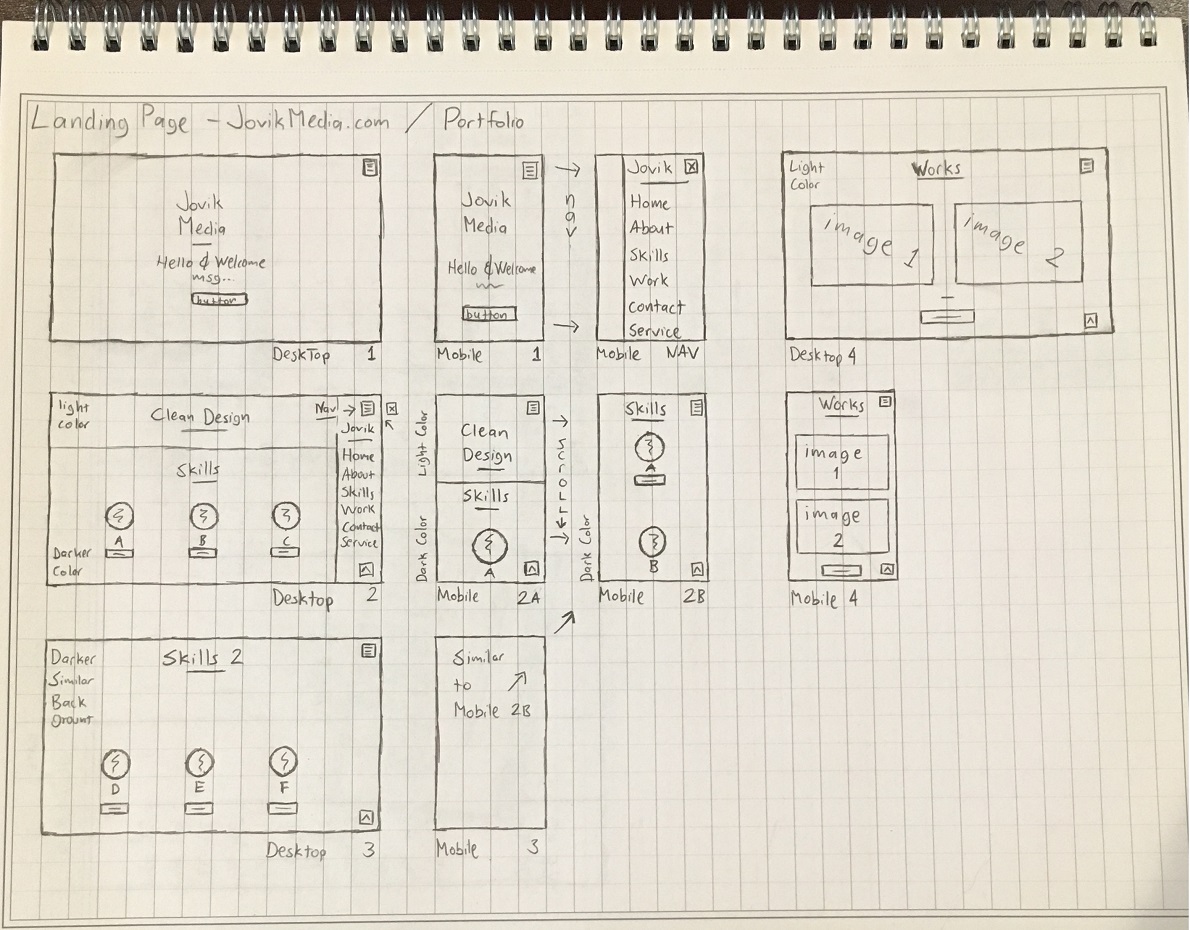 Landing Page - JovikMedia.com / Portfolio
Jovik
Media
Hello & Welcome
msg...
button
DeskTop 1
Jovik
Media
Hello & Welcome
button
Mobile 1
nav
Jovik
Home
About
Skills
Work
Contact
Service
Mobile NAV
Light
Color
Works
image 1
image 2
Desktop 4
light
color
Clean Design
Nav →
Jovik
Home
About
Skills
Work
Contact
Service
Skills
A
B
C
Darker
Color
Desktop 2
Light Color
Dark Color
Clean
Design
Skills
A
Mobile 2A
Dark Color
Skills
A
B
Mobile 2B
Works
image
1
image
2
Mobile 4
Darker
Similar
Back
Skills 2
D
E
F
Desktop 3
Similar
to
Mobile 2B
Mobile 3